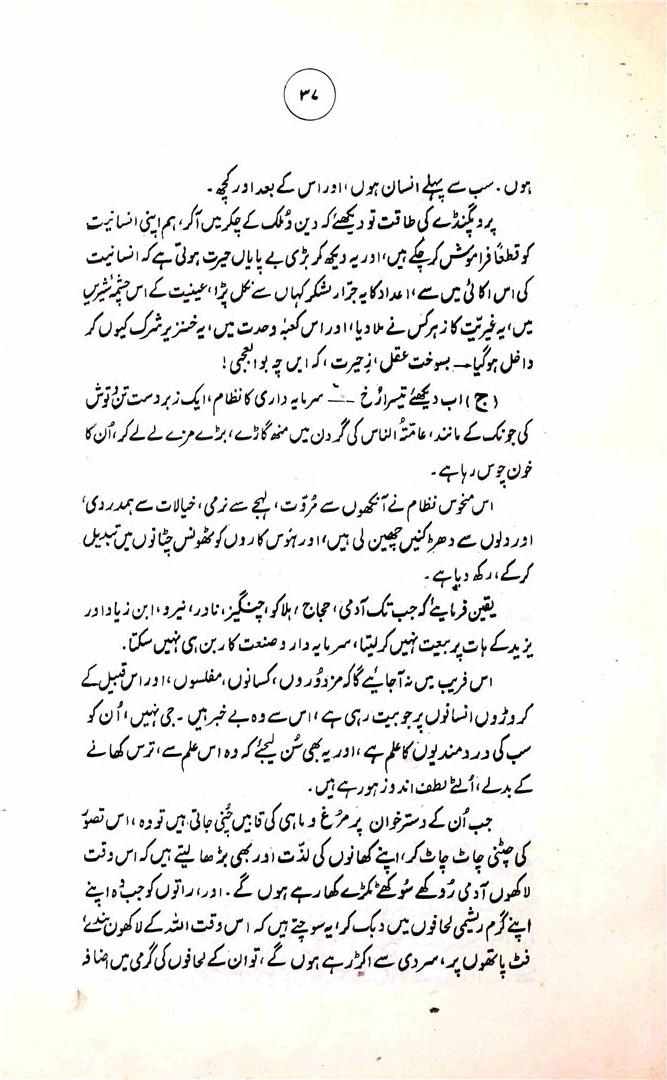 ۳۷
ہوں۔ سب سے پہلے انسان ہوں، اور اس کے بعد اور کچھ۔
پروپگنڈے کی طاقت تو دیکھئے کہ دین و ملک کے چکر میں آکر، ہم اپنی انسانیت
کو قطعاً فراموش کر چکے ہیں، اور یہ دیکھ کر بڑی بے پایاں حیرت ہوتی ہے کہ انسانیت
کی اس اکائی میں سے، اعداد کا یہ جرّار لشکر کہاں سے نکل پڑا، عینیت کے اس چشمۂ شیریں
میں، یہ غیریّت کا زہر کس نے ملا دیا، اور اس کعبۂ وحدت میں، یہ خنزیرِ شرک کیوں کر
داخل ہوگیا — بسوخت عقل، زِ حیرت، کہ ایں چہ بوالعجبی!
(ج) اب دیکھئے تیسرا رُخ — سرمایہ داری کا نظام، ایک زبردست تن و توش
کی جونک کے مانند، عامتہ الناس کی گردن میں منھ گاڑے، بڑے مزے لے لے کر، اُن کا
خون چوس رہا ہے۔
اس منحوس نظام نے آنکھوں سے مُروّت، لہجے سے نرمی، خیالات سے ہمدردی،
اور دلوں سے دھڑکنیں چھین لی ہیں، اور ہَوس کاروں کو ٹھونس چٹانوں میں تبدیل
کرکے، رکھ دیا ہے۔
یقین فرمایئے کہ جب تک آدمی، حجاج، ہلاکو، چنگیز، نادر، نیرو، ابن زیاد اور
یزید کے ہات پر بیعت نہیں کر لیتا، سرمایہ دار و صنعت کار بن ہی نہیں سکتا۔
اس فریب میں نہ آجایئے گا کہ مزدوروں، کسانوں، مفلسوں، اور اس قبیل کے
کروڑوں انسانوں پر جو بیت رہی ہے، اس سے وہ بے خبر ہیں۔ جی نہیں، اُن کو
سب کی دردمندیوں کا علم ہے، اور یہ بھی سُن لیجئے کہ وہ اس علم سے، ترس کھانے
کے بدلے، اُلٹے لطف اندوز ہو رہے ہیں۔
جب اُن کے دسترخوان پر مرغ و ماہی کی قابیں چُنی جاتی ہیں تو وہ، اس تصوّر
کی چٹنی چاٹ چاٹ کر، اپنے کھانوں کی لذّت اور بھی بڑھا لیتے ہیں کہ اس وقت
لاکھوں آدمی رُوکھے سُوکھے ٹکڑے کھا رہے ہوں گے۔ اور، راتوں کو جب وہ اپنے
اپنے گرم ریشمی لحافوں میں دبک کر، یہ سوچتے ہیں کہ اس وقت اللہ کے لاکھوں بندے،
فٹ پاتھوں پر، سردی سے اکڑ رہے ہوں گے، تو ان کے لحافوں کی گرمی میں اضافہ